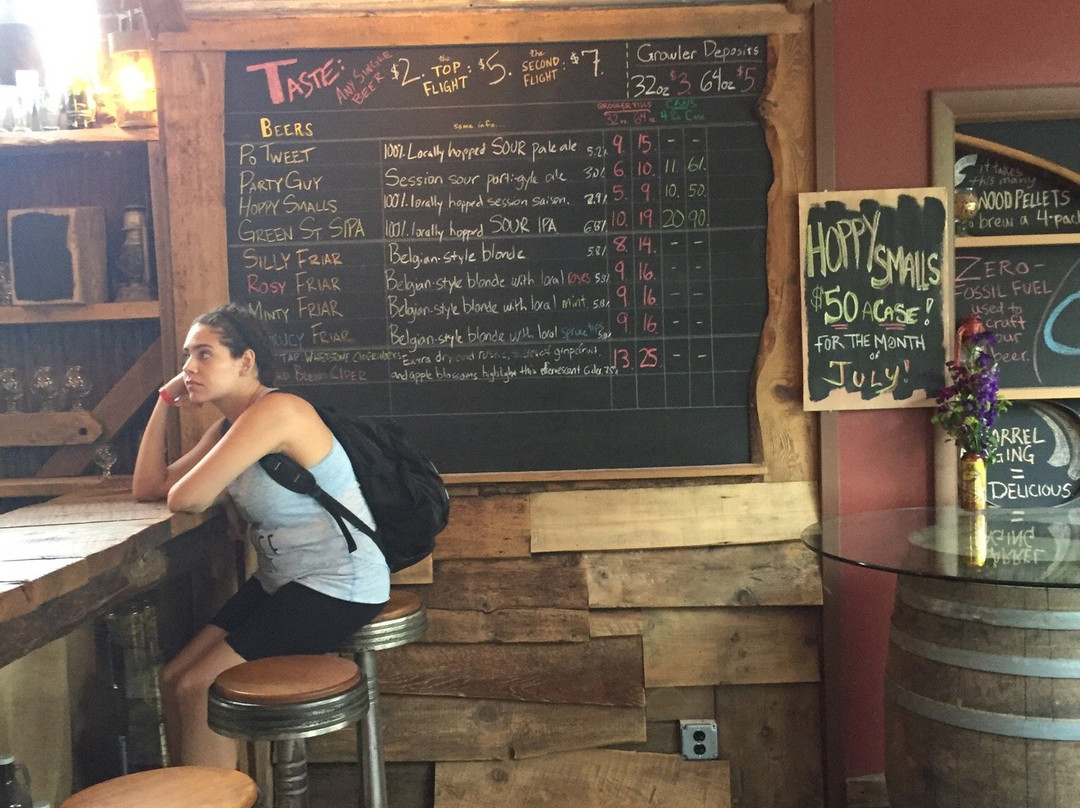 TASTE: ANY SINGLE BEER $2. the TOP FLIGHT: $5. the SECOND FLIGHT: $7.
Growler Deposits
32oz $3. 64oz $5.
BEERS some info... GROWLER FILLS 32oz 64oz CANS 4pk Case
PO TWEET 100% Locally hopped SOUR pale ale 5.2% 9. 15. - -
PARTY GUY Session sour parti-gyle ale 3.0% 6. 10. 11. 61.
HOPPY SMALLS 100% locally hopped session saison. 2.9% 5. 9. 10. 50.
GREEN ST SIPA 100% locally hopped SOUR IPA 6.8% 10. 19 20 90.
SILLY FRIAR Belgian-style blonde 5.8% 8. 14. - -
ROSY FRIAR Belgian-style blonde with local roses 5.8% 9. 16. - -
MINTY FRIAR Belgian-style blonde with local mint 5.8% 9. 16. - -
FRIAR Belgian-style blonde with local spruce tips 9. 16. - -
TAP WHETSTONE CIDERWORKS Extra dry and notes of grapefruit
CIDER and apple blossoms highlight this effervescent cider. 13. 25. - -
HOPPY
SMALLS
$50 A CASE!
FOR THE MONTH
of
JULY!
it takes
this many
WOOD PELLETS
to brew a 4-pack
ZERO-
FOSSIL FUEL
used to
craft
your
beer.
BARREL
AGING
=
DELICIOUS